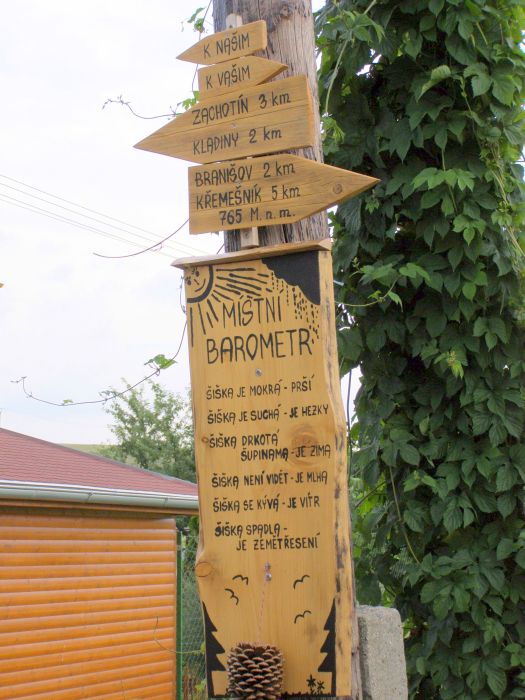 K NAŠIM
K VAŠIM
ZACHOTÍN 3 km
KLADINY 2 km
BRANIŠOV 2 km
KŘEMEŠNÍK 5 km
765 M.n.m.
MÍSTNÍ
BAROMETR
ŠIŠKA JE MOKRÁ - PRŠÍ
ŠIŠKA JE SUCHÁ - JE HEZKY
ŠIŠKA DRKOTÁ
ŠUPINAMA - JE ZIMA
ŠIŠKA NENÍ VIDĚT - JE MLHA
ŠIŠKA SE KÝVÁ - JE VÍTR
ŠIŠKA SPADLA -
JE ZEMĚTŘESENÍ